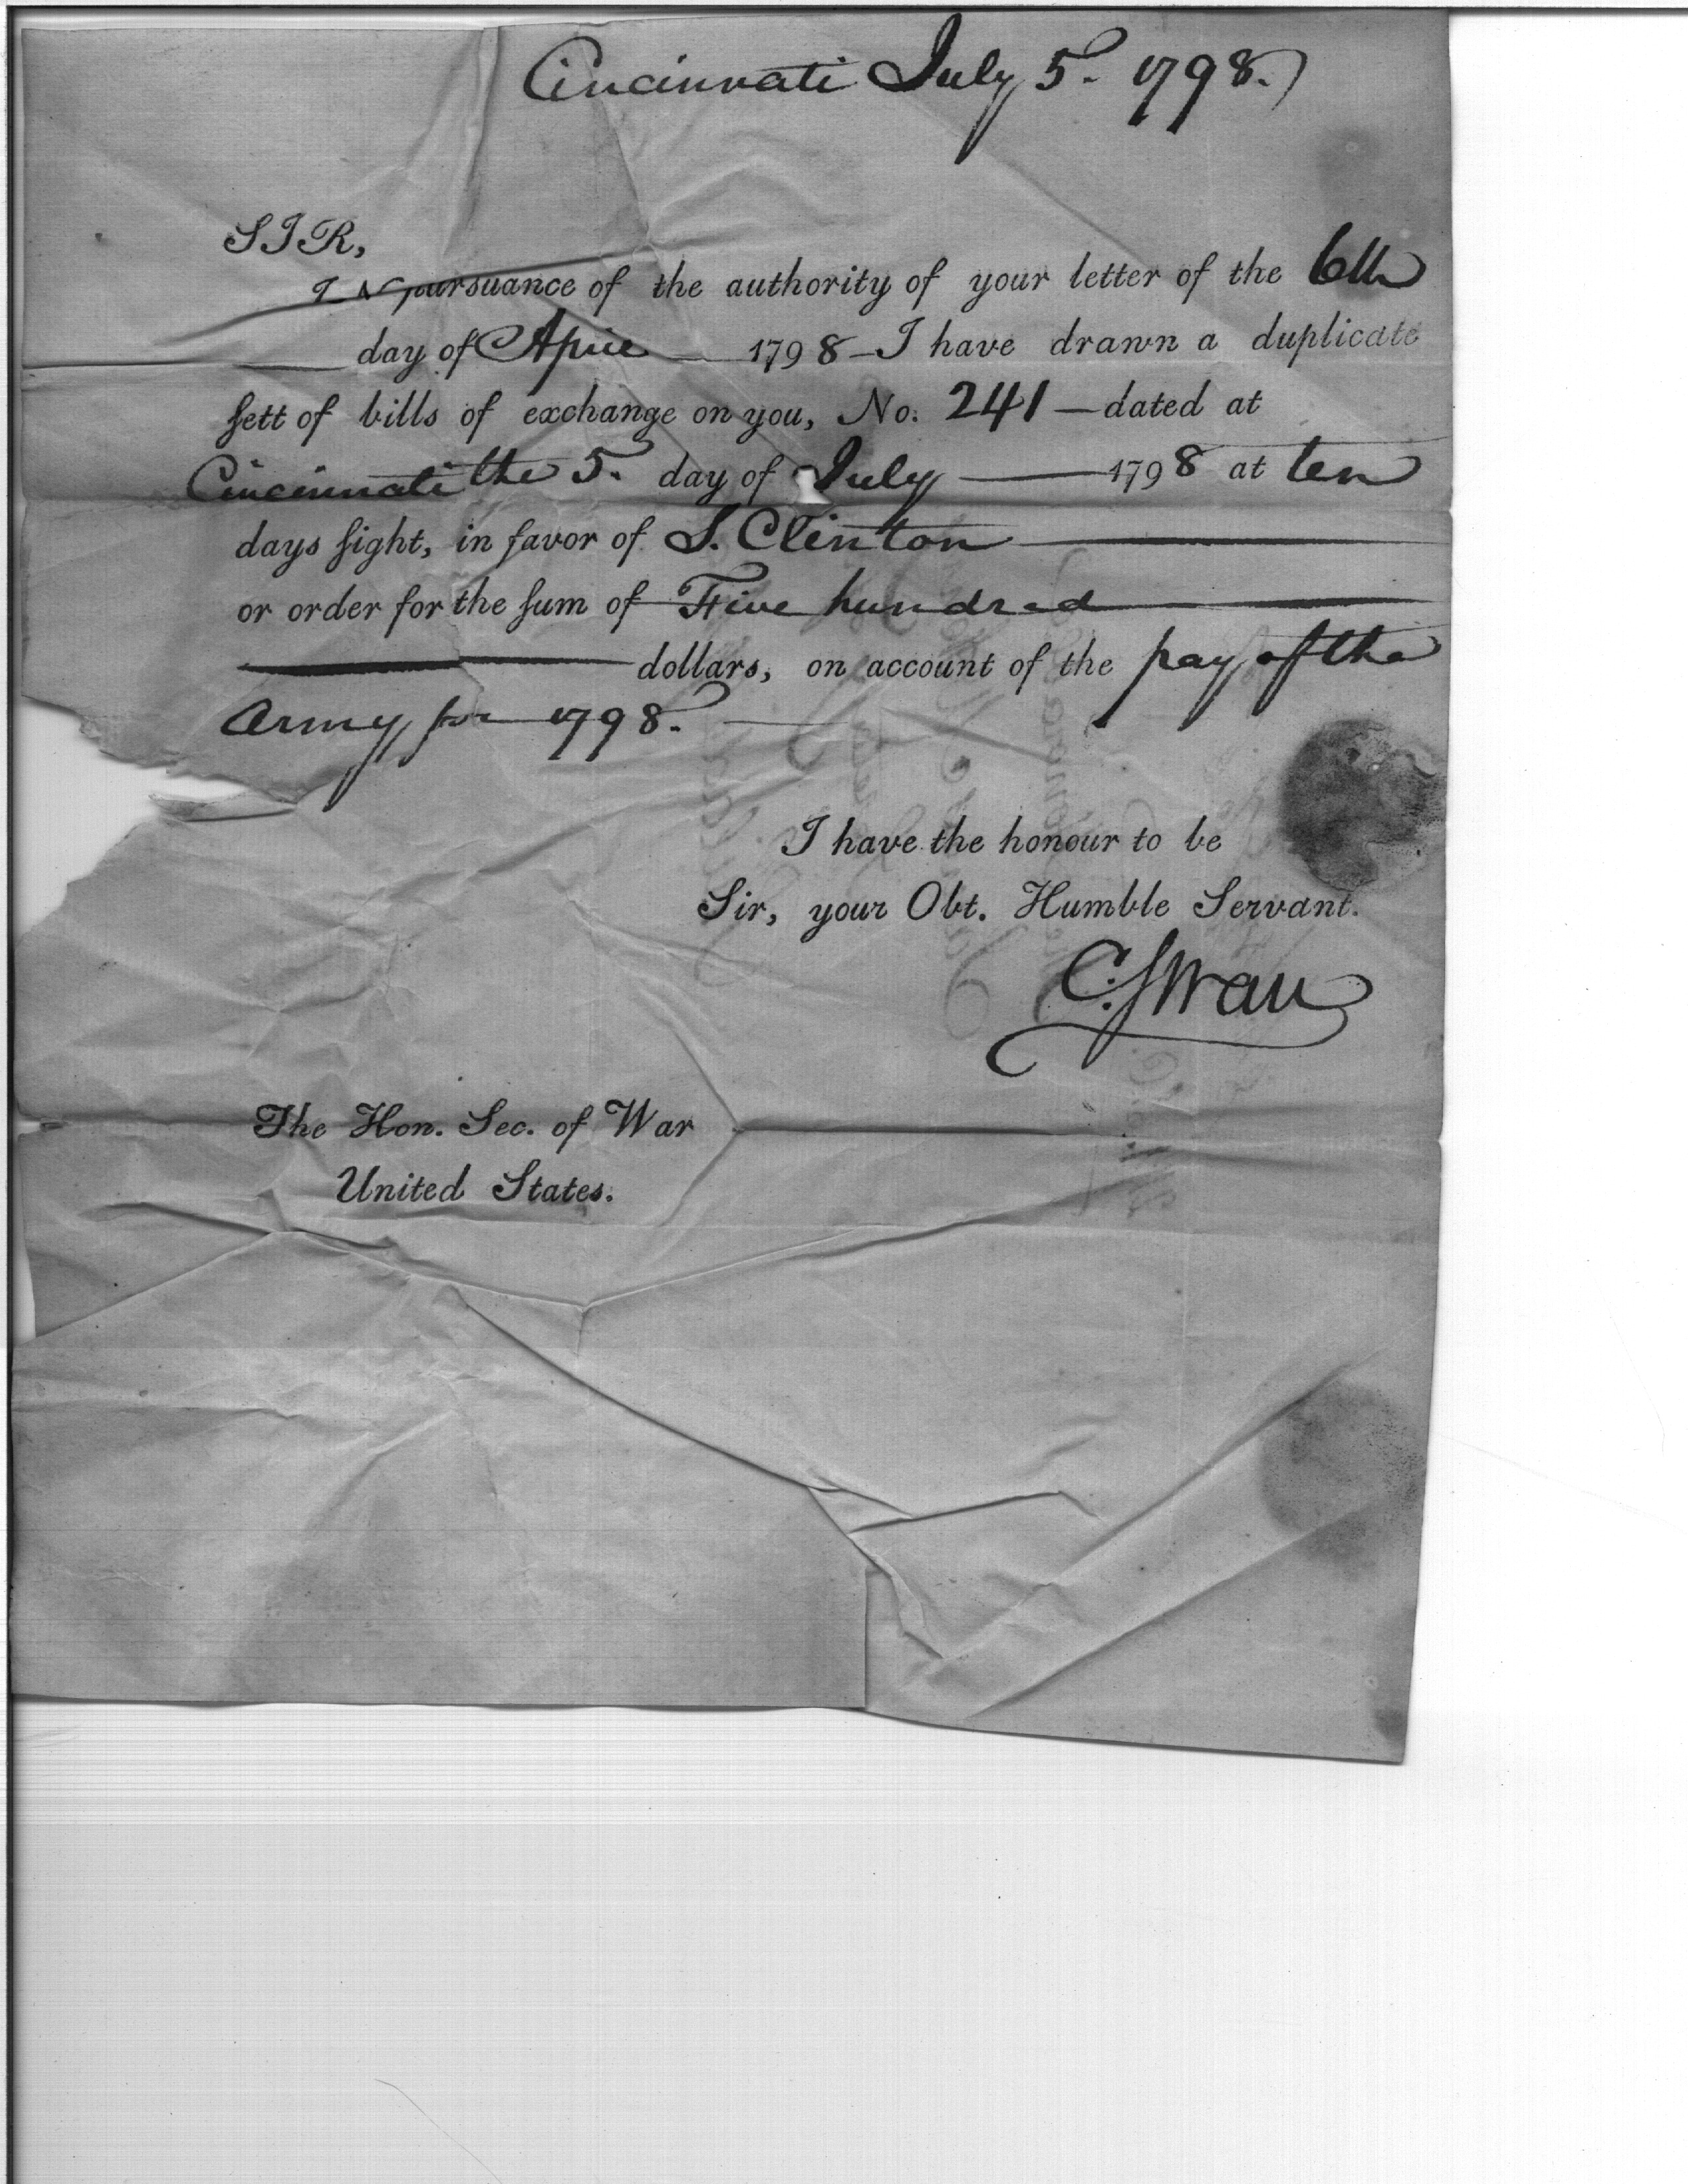 Cincinnati July 5. 1798.
SIR,
IN pursuance of the authority of your letter of the 6th
day of April 1798 - I have drawn a duplicate
sett of bills of exchange on you, No. 241 — dated at
Cincinnati the 5. day of July — 1798 at ten
days sight, in favor of S. Clinton
or order for the sum of Five hundred
dollars, on account of the pay of the
Army for 1798.
I have the honour to be
Sir, your Obt. Humble Servant.
C. Swan
The Hon. Sec. of War
United States.